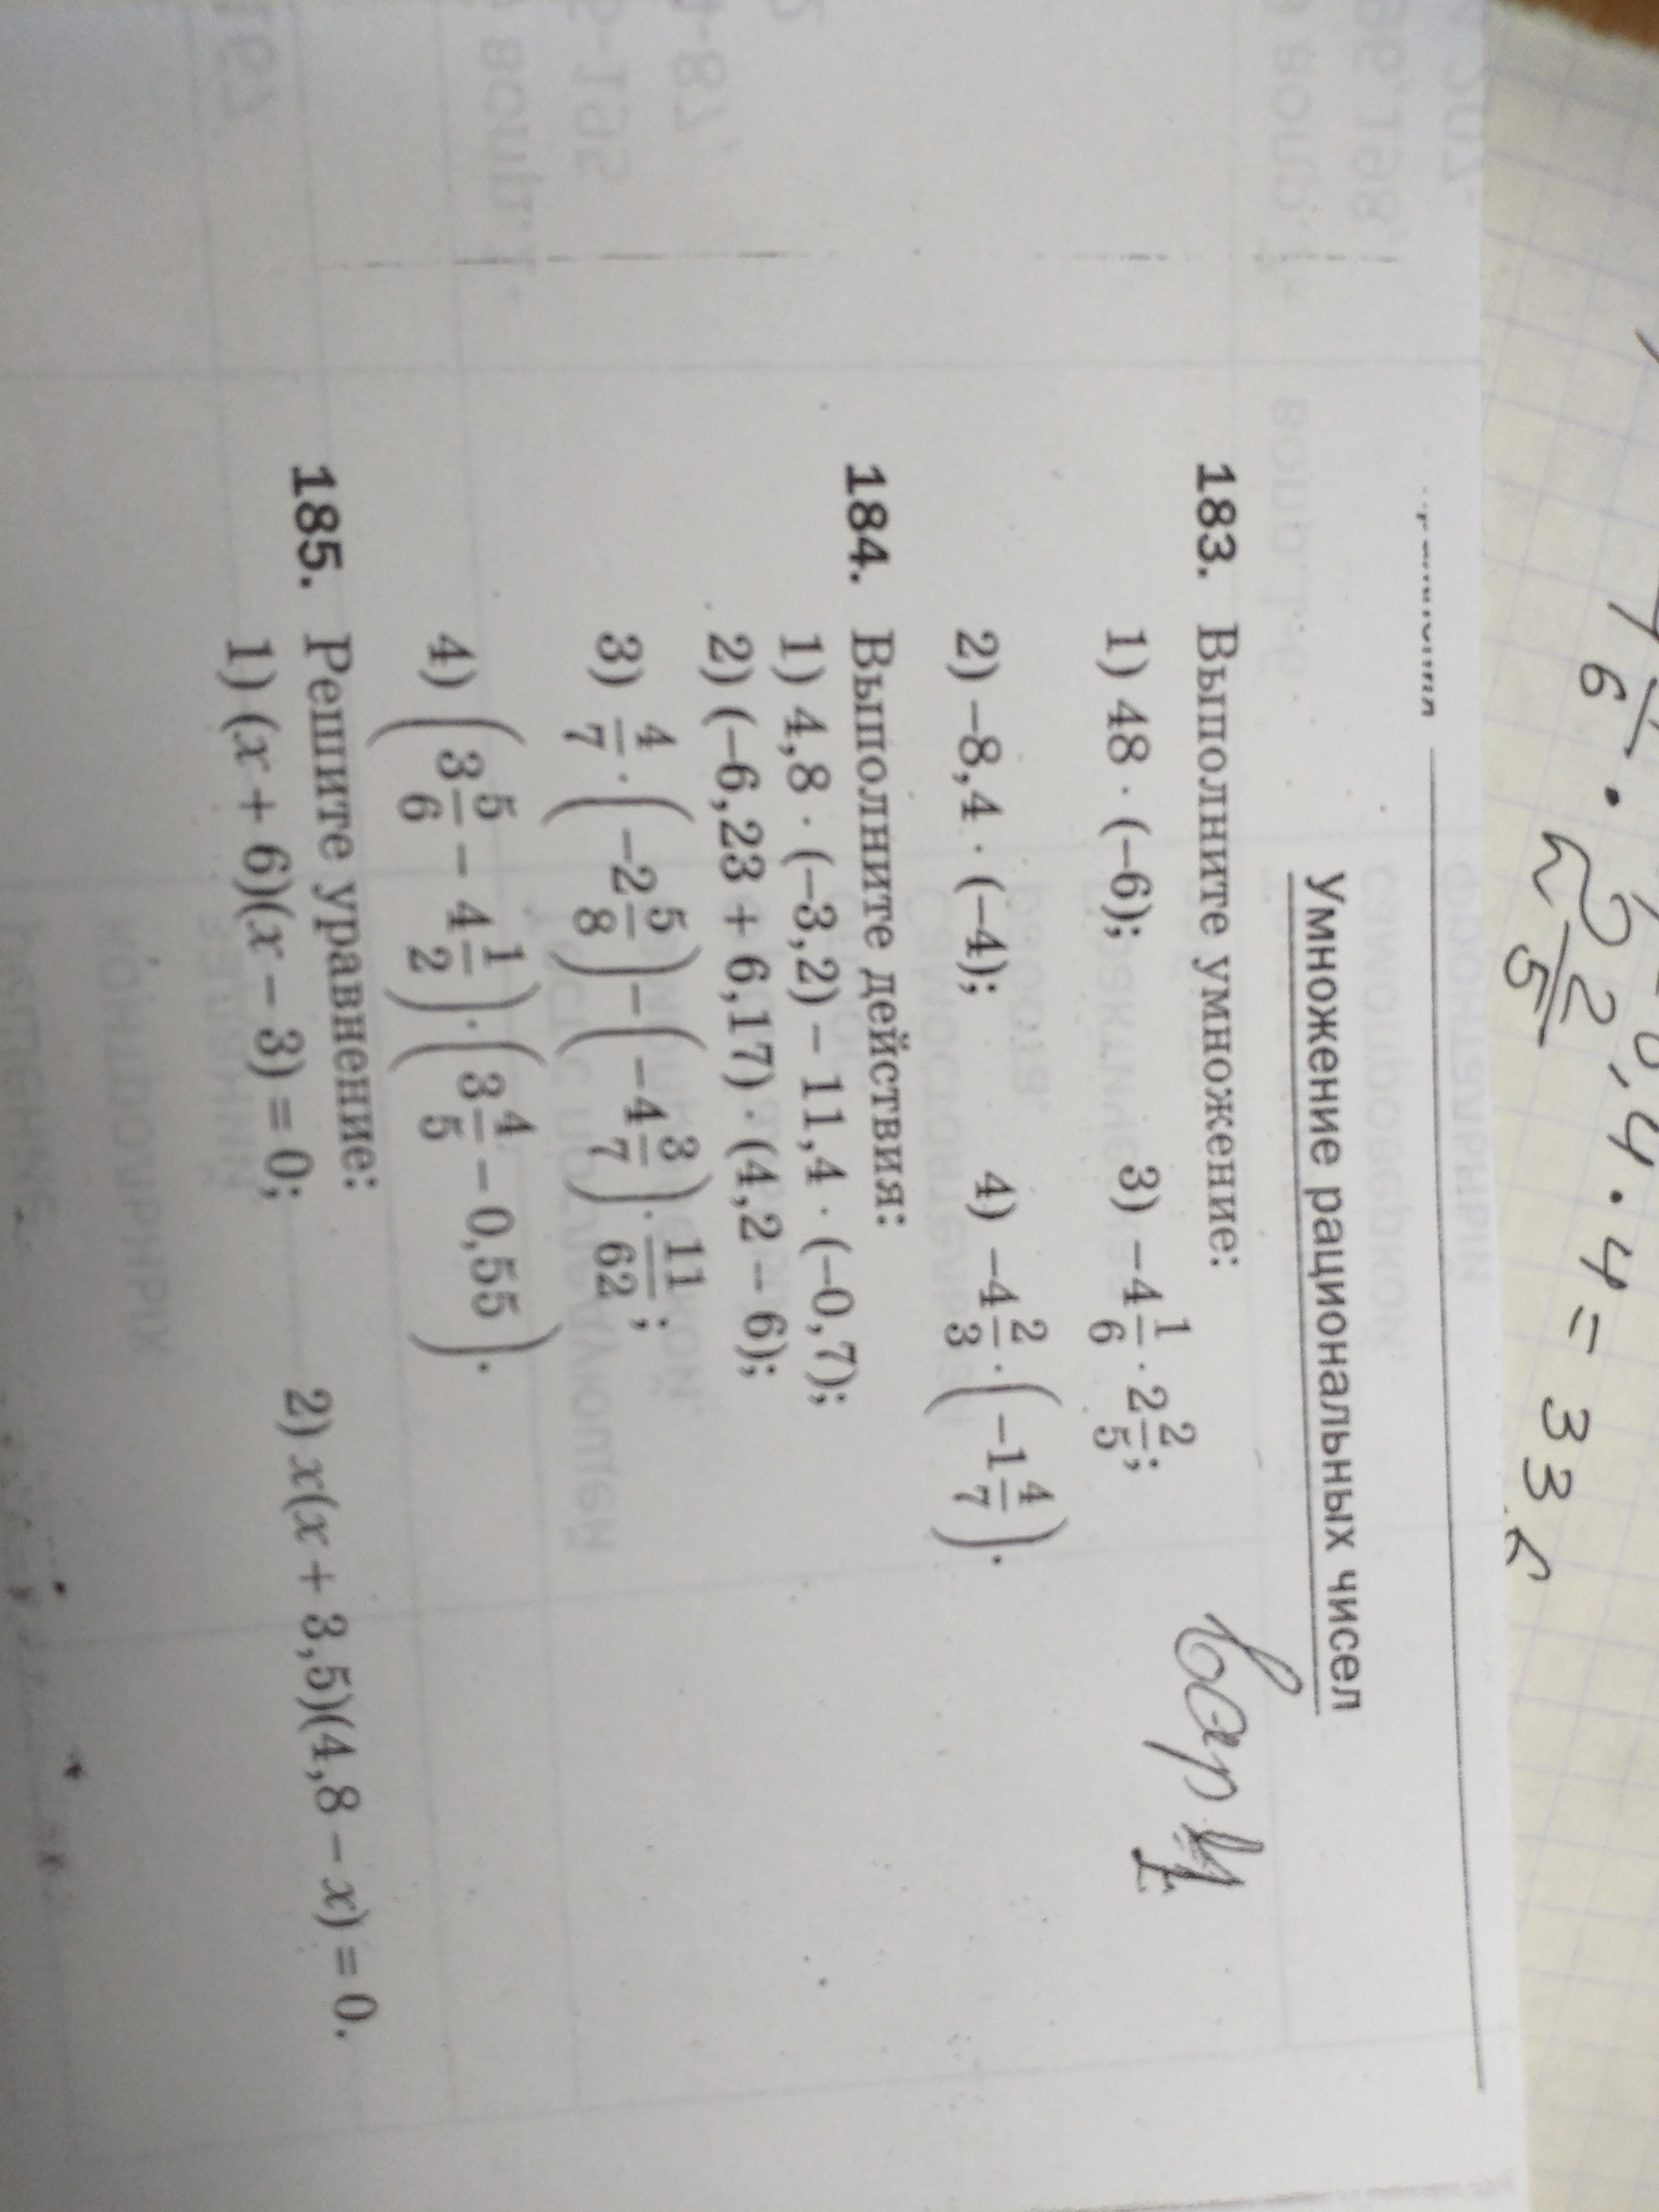 6 · 2 2/5
,4 · 4 = 33
Умножение рациональных чисел
183. Выполните умножение:
вар
1) 48 · (–6);    3) –4 1/6 · 2 2/5;
2) –8,4 · (–4);    4) –4 2/3 · (–1 4/7).
184. Выполните действия:
1) 4,8 · (–3,2) – 11,4 · (–0,7);
2) (–6,23 + 6,17) · (4,2 – 6);
3) 4/7 · (–2 5/8) – (–4 3/7) · 11/62;
4) (3 5/6 – 4 1/2) · (3 4/5 – 0,55).
185. Решите уравнение:
1) (x + 6)(x – 3) = 0;    2) x(x + 3,5)(4,8 – x) = 0.